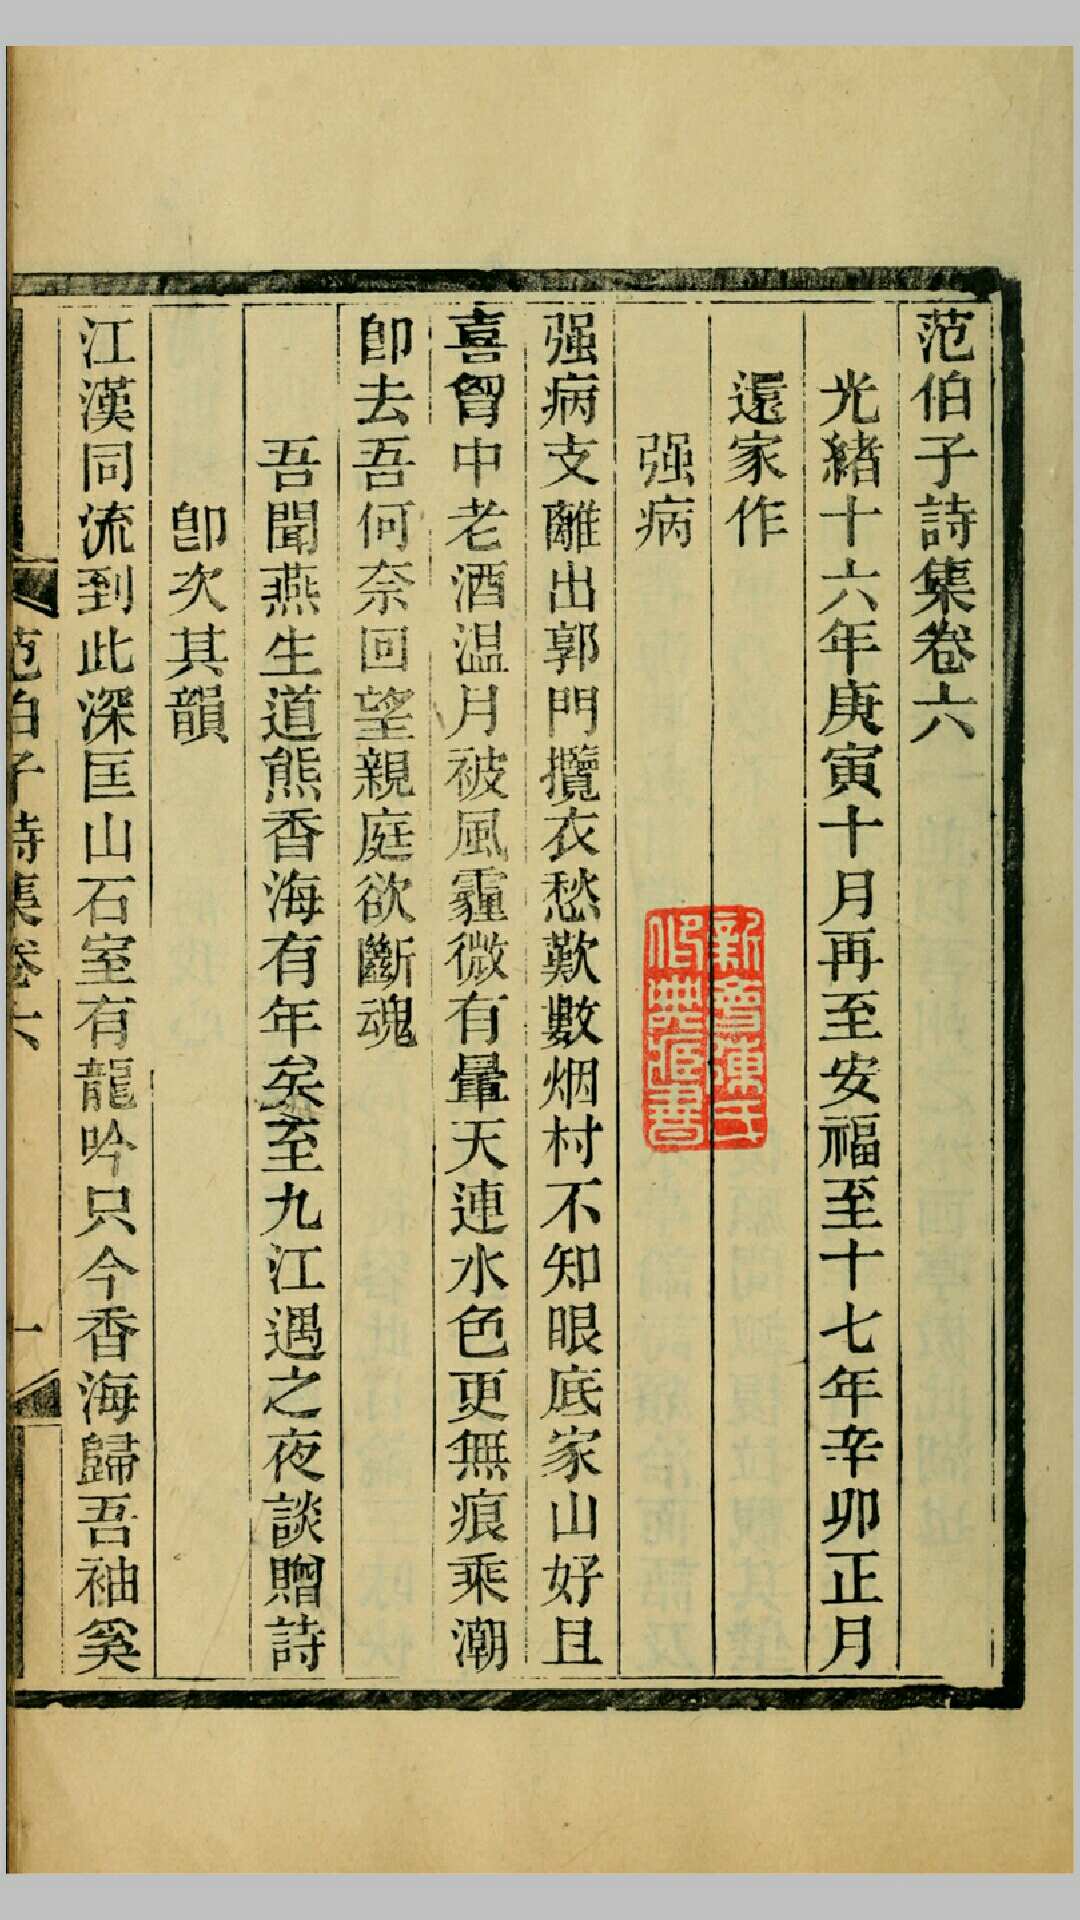 范伯子詩集卷六
光緒十六年庚寅十月再至安福至十七年辛卯正月
還家作
强病
强病支離出郭門攬衣愁歎數烟村不知眼底家山好且
喜胷中老酒温月被風霾微有暈天連水色更無痕乘潮
卽去吾何奈回望親庭欲斷魂
吾聞燕生道熊香海有年矣至九江遇之夜談贈詩
卽次其韻
江漢同流到此深匡山石室有龍吟只今香海歸吾袖奚
范伯子詩集卷六
一